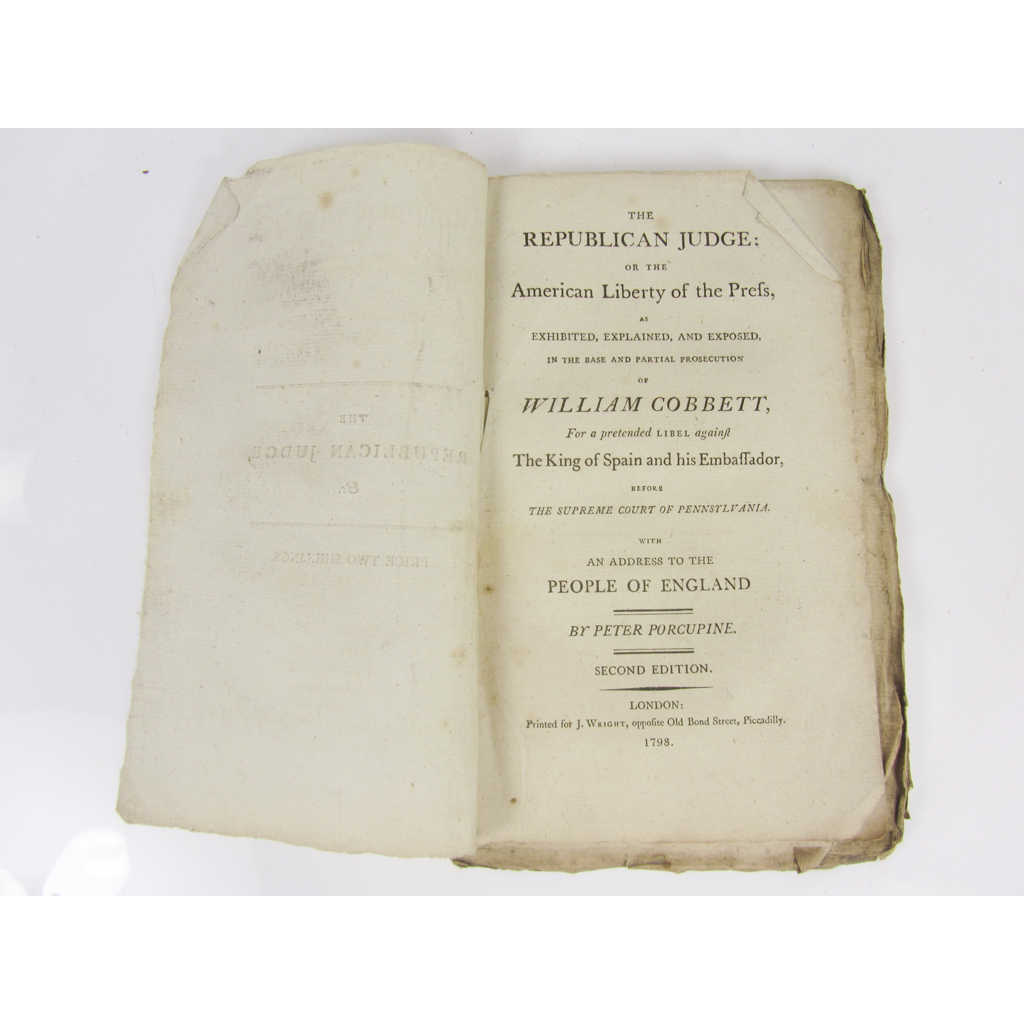 THE
REPUBLICAN JUDGE,
&c.
PRICE TWO SHILLINGS.
THE
REPUBLICAN JUDGE:
OR THE
American Liberty of the Preſs,
AS
EXHIBITED, EXPLAINED, AND EXPOSED,
IN THE BASE AND PARTIAL PROSECUTION
OF
WILLIAM COBBETT,
For a pretended LIBEL againſt
The King of Spain and his Embaſſador,
BEFORE
THE SUPREME COURT OF PENNSYLVANIA.
WITH
AN ADDRESS TO THE
PEOPLE OF ENGLAND
BY PETER PORCUPINE.
SECOND EDITION.
LONDON:
Printed for J. WRIGHT, oppoſite Old Bond Street, Piccadilly.
1798.